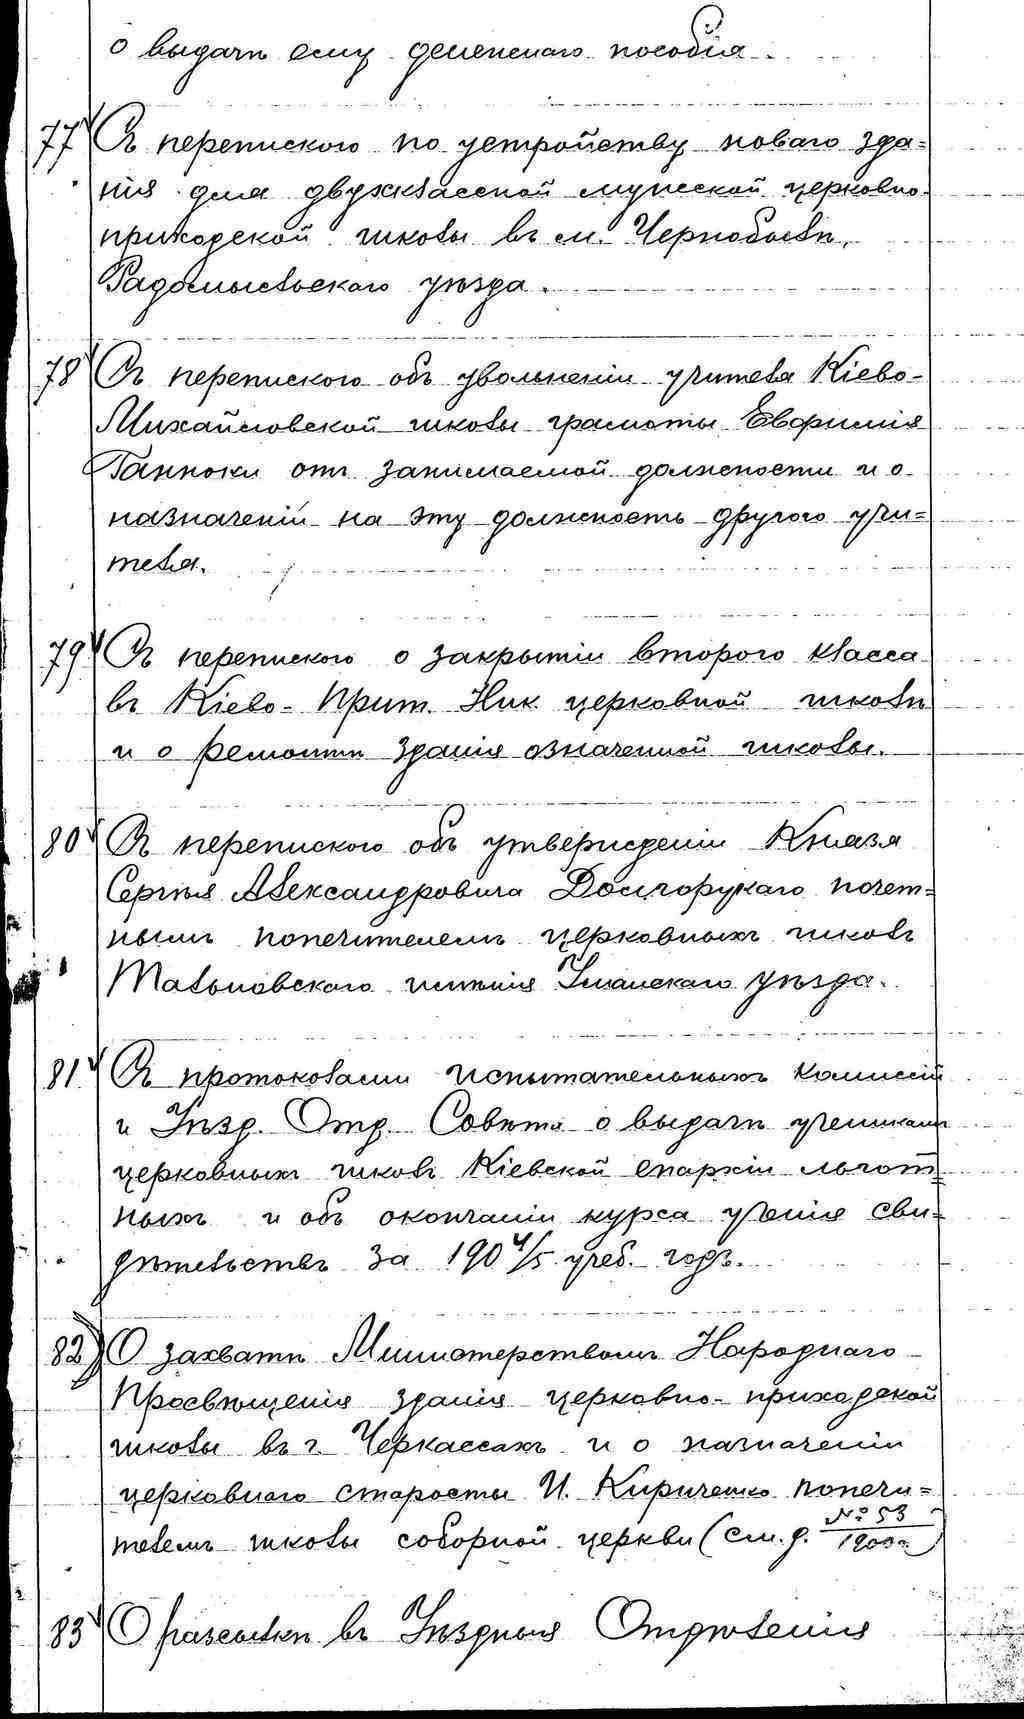 о выдачѣ ему денежнаго пособія.
77 Съ перепискою по устройству новаго зда=
нія для двухклассной мужской церковно-
приходской школы въ м. Чернобылѣ,
Радомысльскаго уѣзда.
78 Съ перепискою объ увольненіи учителя Кіево-
Михайловской школы грамоты Евфимія
Ганноки отъ занимаемой должности и о
назначеніи на эту должность другого учи=
теля.
79 Съ перепискою о закрытіи второго класса
въ Кіево-Прит. Ник. церковной школѣ
и о ремонтѣ зданія означенной школы.
80 Съ перепискою объ утвержденіи Князя
Сергѣя Александровича Долгорукаго почет=
нымъ попечителемъ церковныхъ школъ
Тальновскаго имѣнія Уманскаго уѣзда.
81 Съ протоколами испытательныхъ комиссій
и Уѣзд. Отд. Совѣта о выдачѣ ученикамъ
церковныхъ школъ Кіевской епархіи льгот=
ныхъ и объ окончаніи курса ученія сви=
дѣтельствъ за 190 4/5 учеб. годъ.
82 О захватѣ Министерствомъ Народнаго
Просвѣщенія зданія церковно-приходской
школы въ г. Черкассахъ и о назначеніи
церковнаго старосты И. Кириченко попечи=
телемъ школы соборной церкви (см. д. № 53
83 О разсылкѣ въ Уѣздныя Отдѣленія